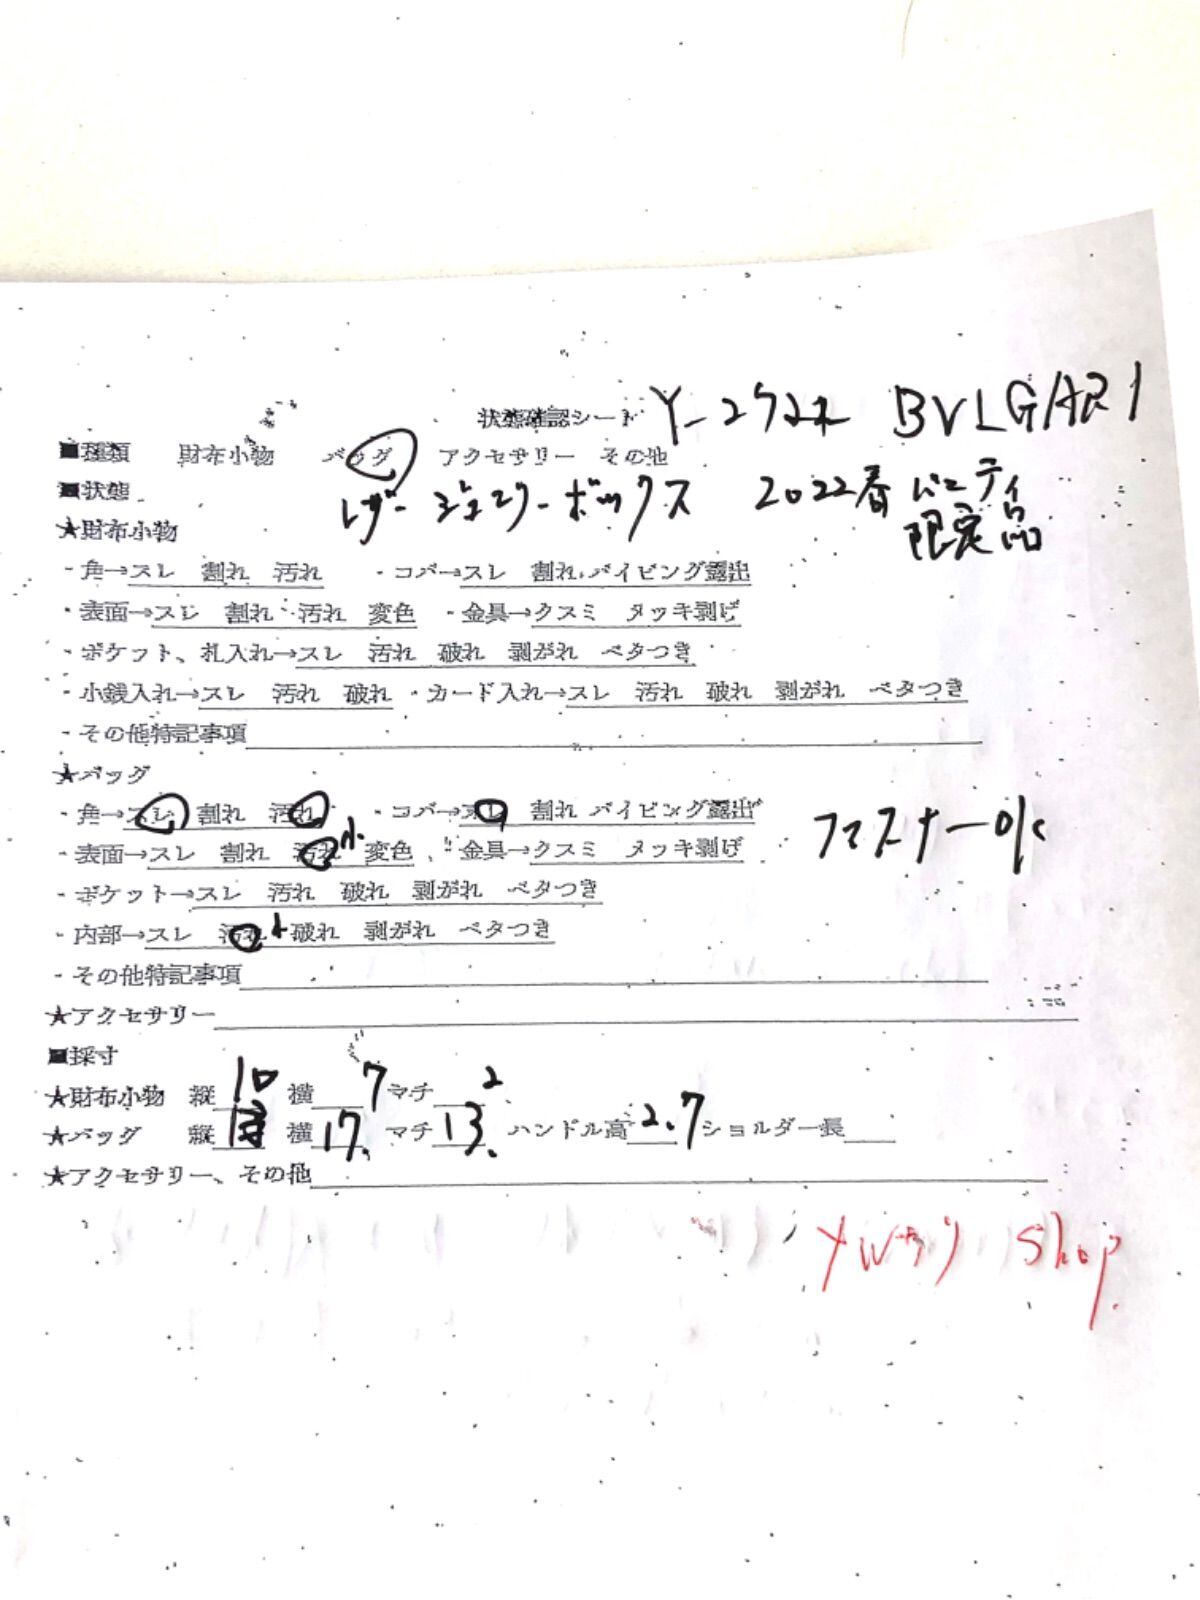 状態確認シート BVLGARI
■種類 財布小物 バッグ アクセサリー その他
■状態 レザージュエリーボックス 2022春 バニティ
限定品
★財布小物
・角→スレ 割れ 汚れ ・コバ→スレ 割れ パイピング露出
・表面→スレ 割れ 汚れ 変色 ・金具→クスミ メッキ剥げ
・ポケット、札入れ→スレ 汚れ 破れ 剥がれ ベタつき
・小銭入れ→スレ 汚れ 破れ ・カード入れ→スレ 汚れ 破れ 剥がれ ベタつき
・その他特記事項
★バッグ
・角→スレ 割れ 汚れ ・コバ→スレ 割れ パイピング露出
ファスナーOK
・表面→スレ 割れ 汚れ 小 変色 ・金具→クスミ メッキ剥げ
・ポケット→スレ 汚れ 破れ 剥がれ ベタつき
・内部→スレ 汚れ 小 破れ 剥がれ ベタつき
・その他特記事項
★アクセサリー
■採寸
★財布小物 縦 10 横 7 マチ 2
★バッグ 縦 横 17. マチ 13. ハンドル高 2.7 ショルダー長
★アクセサリー、その他
Shop